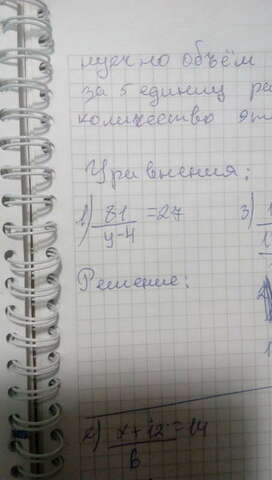 нужно объём
за 5 единиц
количество
Уравнения:
1) 81/у-4 =27
3) 1
Решение:
2) х+12/6 =14